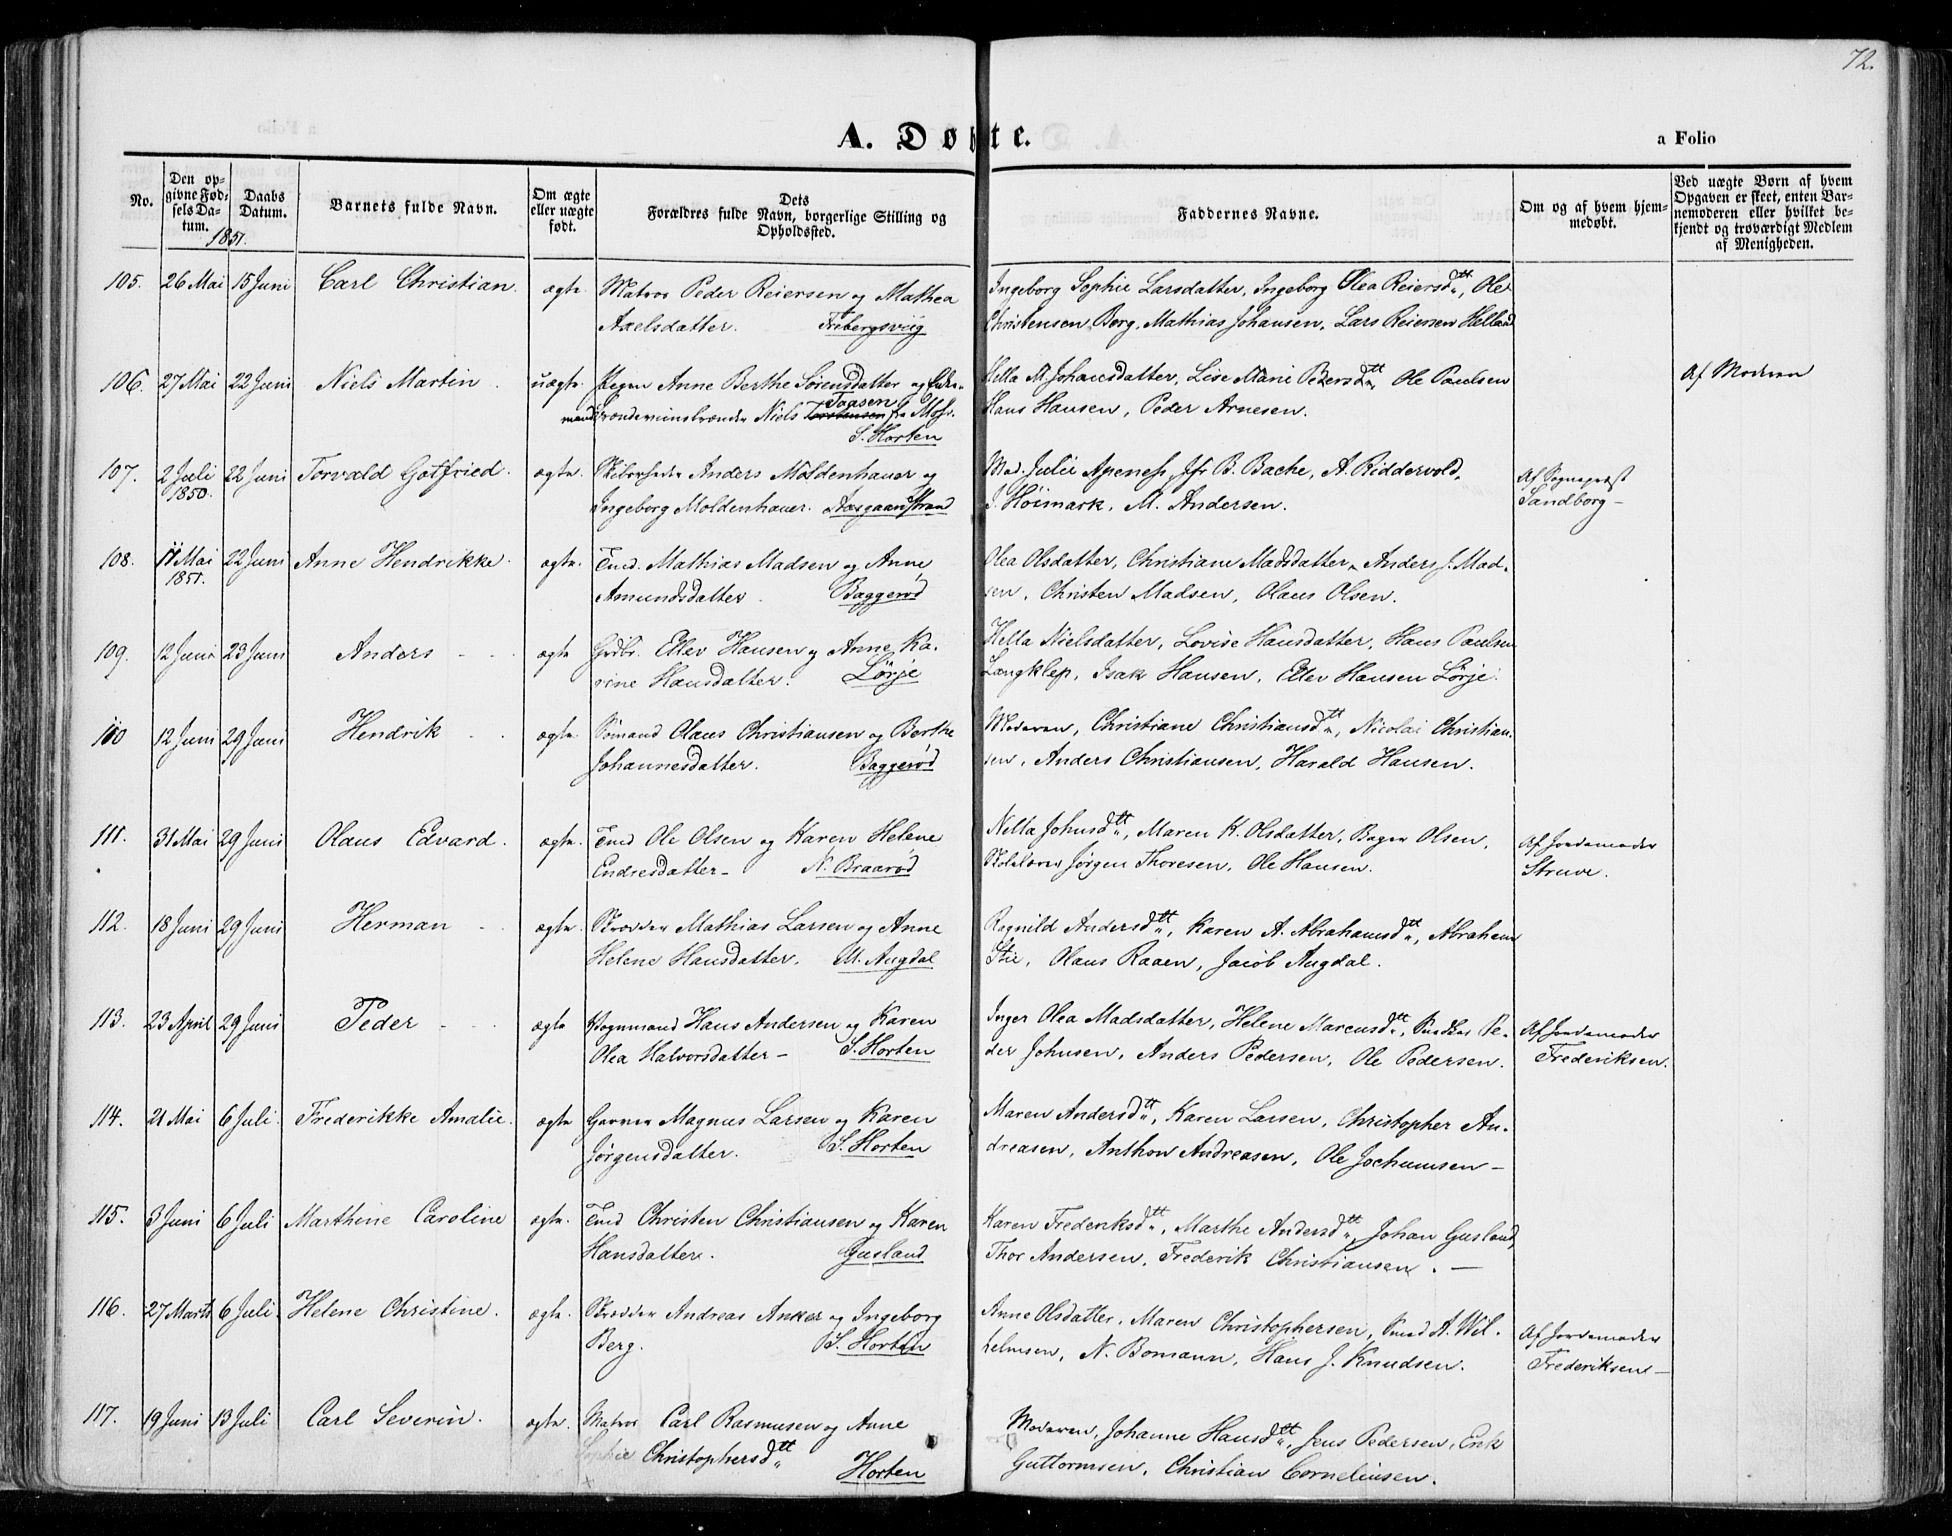 72.
A. Døbte.
a Folio
No.
Den op-
givne Fød-
sels Da-
tum.
Daabs
Datum.
1851.
Barnets fulde Navn.
Om ægte
eller uægte
født.
Dets
Forældres fulde Navn, borgerlige Stilling og
Opholdssted.
Faddernes Navne.
Om og af hvem hjem-
medøbt.
Ved uægte Børn af hvem
Opgaven er skeet, enten Bar-
nemoderen eller hvilket be-
kjendt og troværdigt Medlem
af Menigheden.
105. 26 Mai 15 Juni Carl Christian. ægte. Matros Peder Reiersen og Mathea Ingeborg Sophie Larsdatter, Ingeborg Olea Reiersdtt, Ole
Axelsdatter. Frebergsviig Christensen Berg, Mathias Johansen, Lars Reiersen Helland
106. 27 Mai 22 Juni Niels Martin. uægte. Pigen Anne Berthe Sørensdatter og Enke- Hella M. Johansdatter, Lise Marie Pedersdtt, Ole Paulsen Af Moderen
mand Niels Torstensen Taasen fra Moss. Hans Hansen, Peder Arnesen.
S. Horten
107. 2 Juli 22 Juni Torvald Gotfried. ægte. Anders Moldenhauer og Mad. Julie Apeness, Jfr B. Bache, A. Riddervold, Af Sognepræst
1850. Ingeborg Moldenhauer. Aasgaardstrand J. Høimark, M. Andersen. Sandborg-
108. 11 Mai 22 Juni Anne Hendrikke. ægte. Tmd. Mathias Madsen og Anne Olea Olsdatter, Christiane Madsdatter, Anders J. Mad-
1851. Amundsdatter. Baggerød sen, Christen Madsen, Olaus Olsen.
109. 12 Juni 23 Juni Anders - - ægte Grdbr. Ellev Hansen og Anne Ka- Hella Nielsdatter, Lovise Hansdatter, Hans Paulsen
rine Hansdatter. Lørje Langklep, Isak Hansen, Ellev Hansen Lørje.
110 12 Juni 29 Juni Hendrik - - ægte. Sømand Olaus Christiansen og Berthe Moderen, Christiane Christiansdtt, Nicolai Christian-
Johannesdatter. Baggerød sen, Anders Christiansen, Harald Hansen.
111. 31 Mai 29 Juni Olaus Edvard. ægte. Tmd Ole Olsen og Karen Helene Nella Johnsdtt, Maren K. Olsdatter, Bager Olsen, Af Jordemoder
Endresdatter- N. Braarød Skolelærer Jørgen Thoresen, Ole Hansen. Struve.
112. 18 Juni 29 Juni Herman - - ægte. Skrædder Mathias Larsen og Anne Ragnild Andersdtt, Karen A. Abrahamsdtt, Abraham
Helene Hansdatter. M. Augdal Stie, Olaus Raaen, Jacob Augdal.
113. 23 April 29 Juni Peder - - ægte Vognmand Hans Andersen og Karen Inger Olea Madsdatter, Helene Marcusdtt, Snedker Pe- Af Jordemoder
Olea Halvorsdatter- S. Horten der Johnsen, Anders Pedersen, Ole Pedersen. Frederiksen.
114. 21 Mai 6 Juli Frederikke Amalie. ægte Garver Magnus Larsen og Karen Maren Andersdtt, Karen Larsen, Christopher An-
Jørgensdatter. S. Horten dreasen, Anthon Andreasen, Ole Jochumsen-
115. 3 Juni 6 Juli Marthine Caroline ægte. Tmd Christen Christiansen og Karen Karen Frederiksdtt, Marthe Andersdtt, Johan Gusland,
Hansdatter. Gusland Thor Andersen, Frederik Christiansen. -
116. 27 Marts 6 Juli Helene Christine. ægte. Skrædder Andreas Anker og Ingeborg Anne Olsdatter, Maren Christophersen, Smed A. Wil- Af Jordemoder
Berg. S. Horten helmsen, N. Bomann, Hans J. Knudsen. Frederiksen-
117. 19 Juni 13 Juli Carl Severin. ægte. Matros Carl Rasmusen og Anne Moderen, Johanne Hansdtt, Jens Pedersen, Erik
Sophie Christophersdtt Horten Guttormsen, Christian Corneliusen.